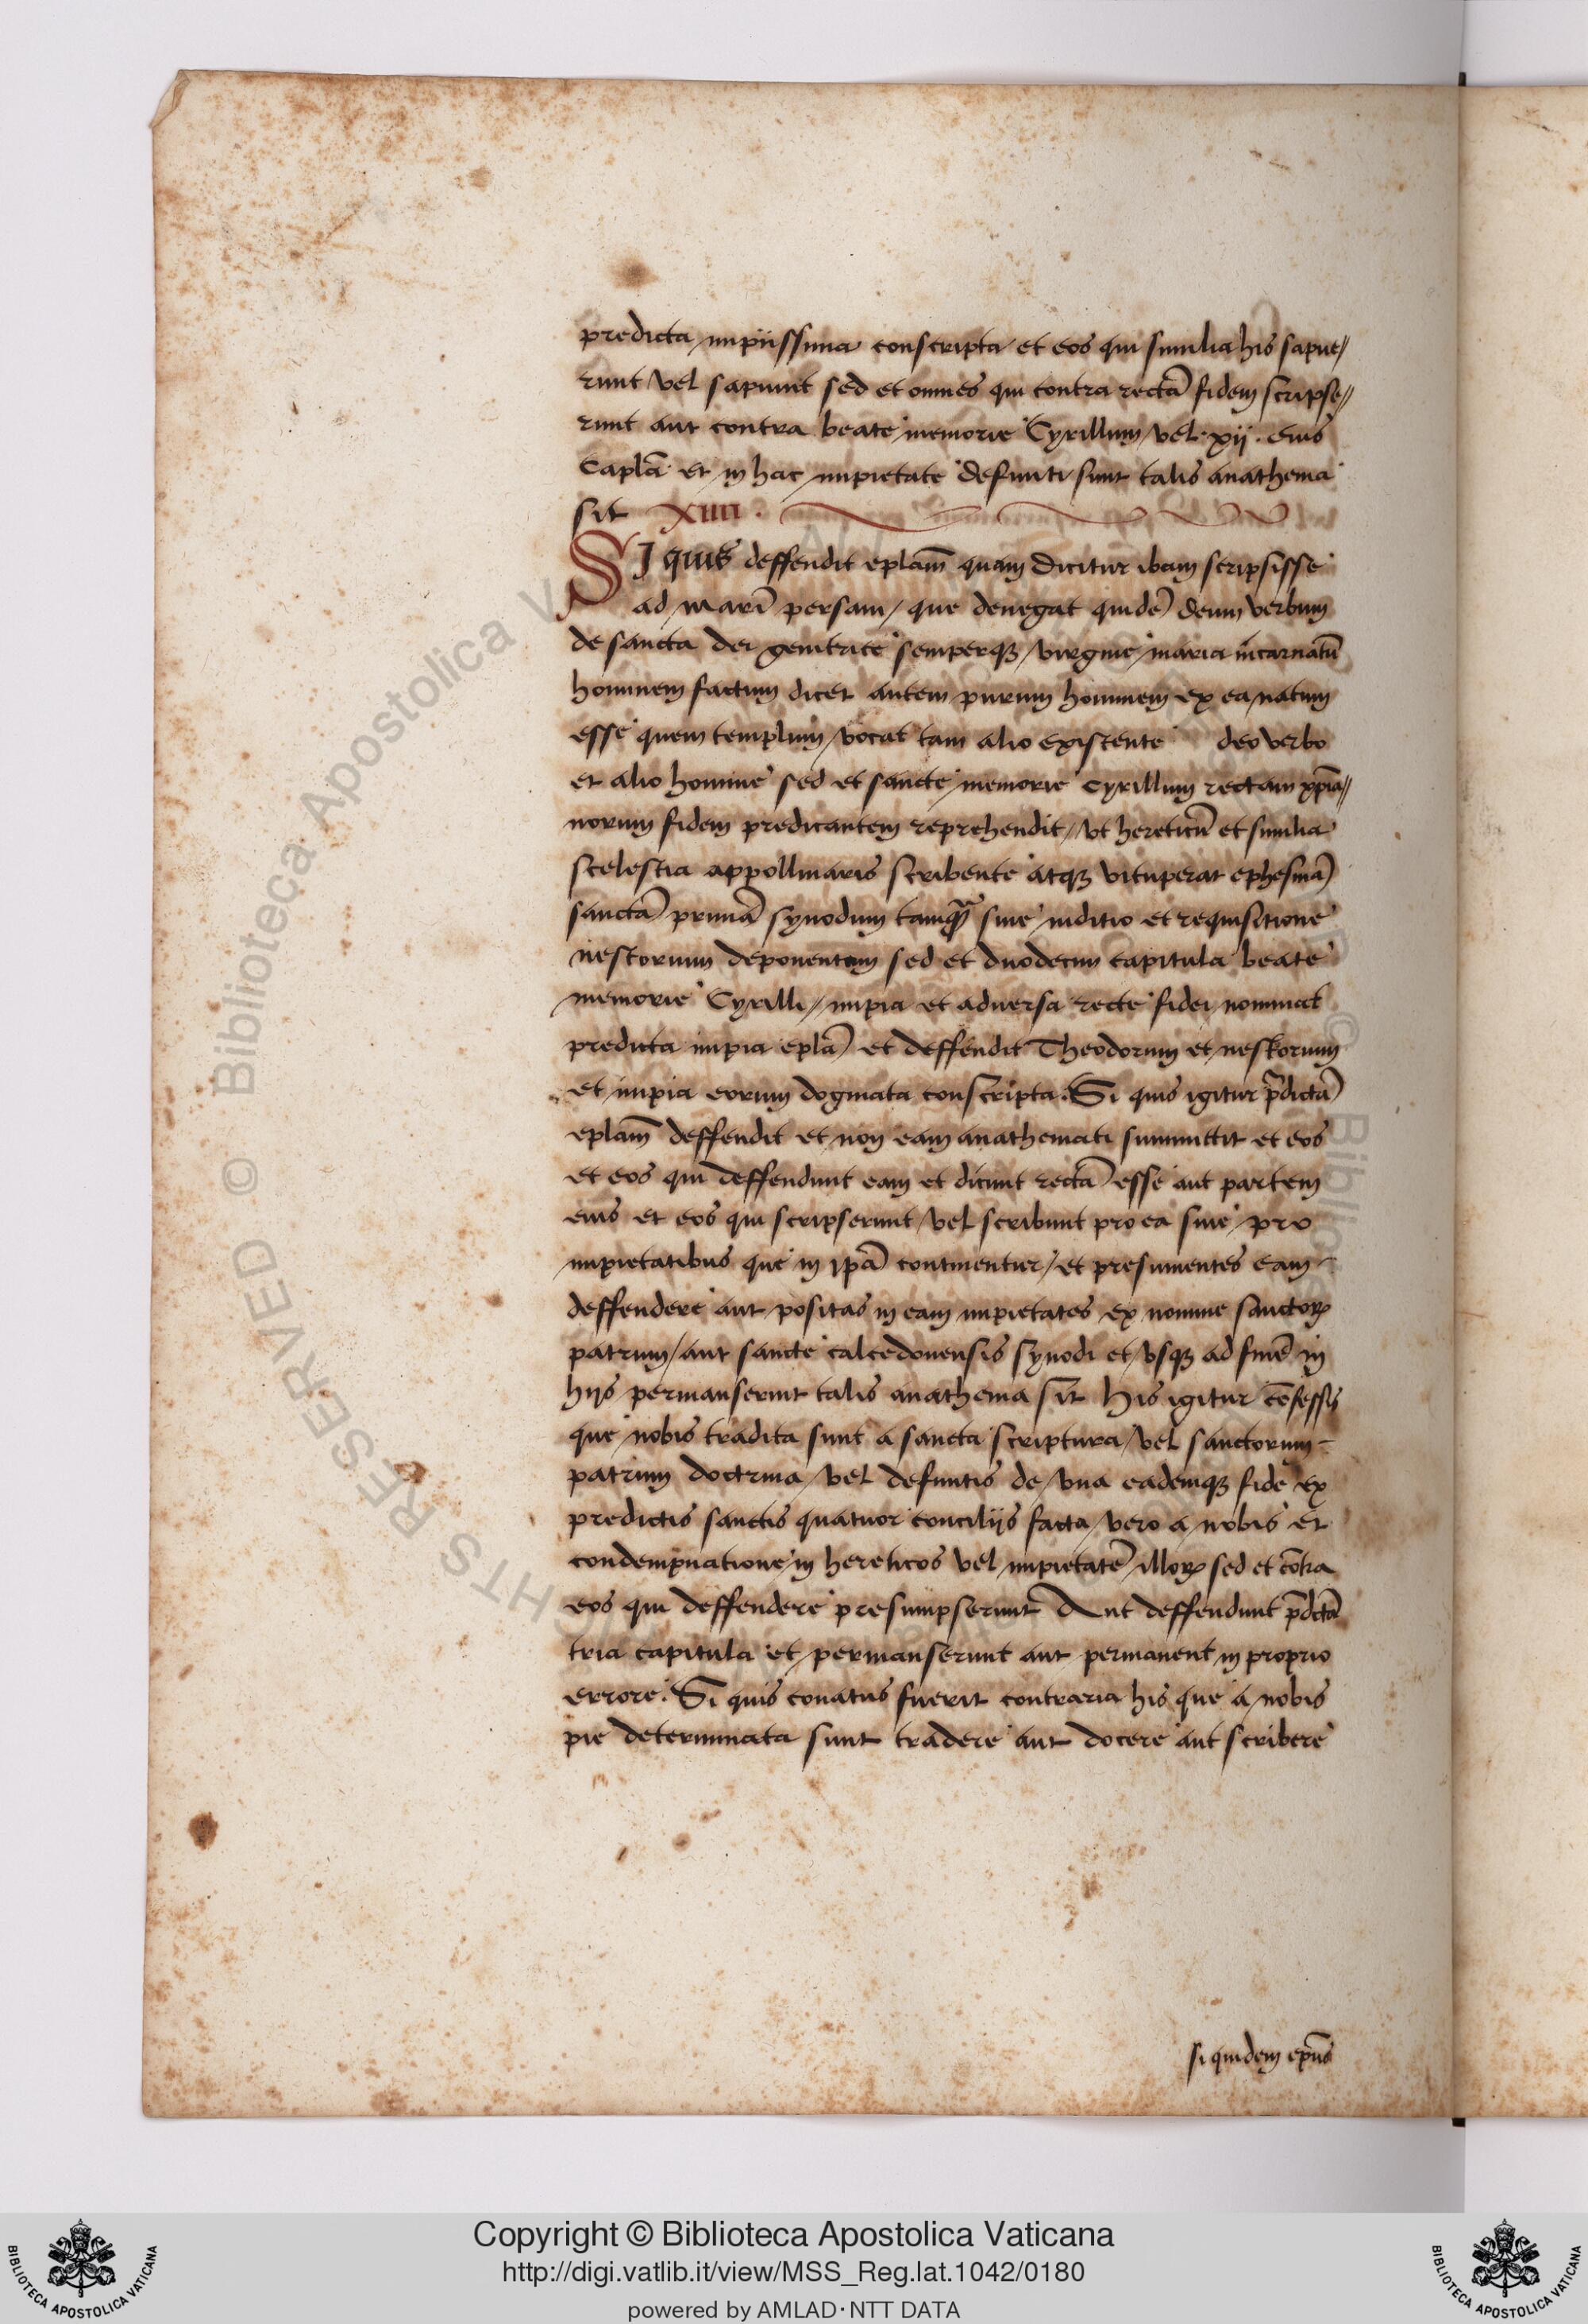 predicta impiissima conscripta et eos qui similia his sapue//
runt vel sapiunt sed et omnes qui contra rectā fidem scripse//
runt aut contra beate memorie Cyrillum vel · xij · eius
Caplā et in hac impietate defuncti sunt talis anathema
sit XIIII ·
SI quis deffendit eplam̄ quam dicitur ibam scripsisse
ad marī persam / que denegat quidē deum verbum
de sancta dei genitrice semperqꝫ virgine maria incarnatū
hominem factum dicet autem purum hominem ex ea natum
esse quem templum vocat tam alio existente deo verbo
et alio homine sed et sancte memorie cyrillum rectam xp̄ia//
norum fidem predicantem reprehendit / vt hereticū et similia
scelestia appollinaris scribente atqꝫ vituperat ephesinā
sanctā primā synodum tamqꝫ sine iuditio et requisitione
nestorium deponentem sed et duodecim capitula beate
memorie Cyrilli / impia et aduersa recte fidei nominat
predicta impia eplā et deffendit Theodorum et nestorium
et impia eorum dogmata conscripta . Si quis igitur p̄dictā
eplam̄ deffendit et non eam anathemati summittit et eos
et eos qui deffendunt eam et dicunt rectā esse aut partem
eius et eos qui scripserunt vel scribunt pro ea siue pro
impietatibus que in ip̄a continentur / et presumentes eam
deffendere aut positas in eam impietates ex nomine sanctoꝝ
patrum / aut sancte calcedonensis synodi et vsqꝫ ad finē in
hijs permanserint talis anathema sit His igitur cōfessis
que nobis tradita sunt a sancta scriptura / vel sanctorum
patrum doctrina / vel defuntis de vna eademqꝫ fide ex
predictis sanctis quatuor concilijs facta vero a nobis et
condempnatione in hereticos vel impietatē illoꝝ sed et cōtra
eos qui deffendere presumpserunt Aut deffendunt p̄dcta
tria capitula et permanserunt aut permanent in proprio
errore . Si quis conatus fuerit contraria his que a nobis
pie determinata sunt tradere aut docere aut scribere
si quidem ep̄us
RESERVED © Biblioteca Apostolica
Copyright © Biblioteca Apostolica Vaticana
http://digi.vatlib.it/view/MSS_Reg.lat.1042/0180
powered by AMLAD·NTT DATA
BIBLIOTECA APOSTOLICA VATICANA
BIBLIOTECA APOSTOLICA VATICANA